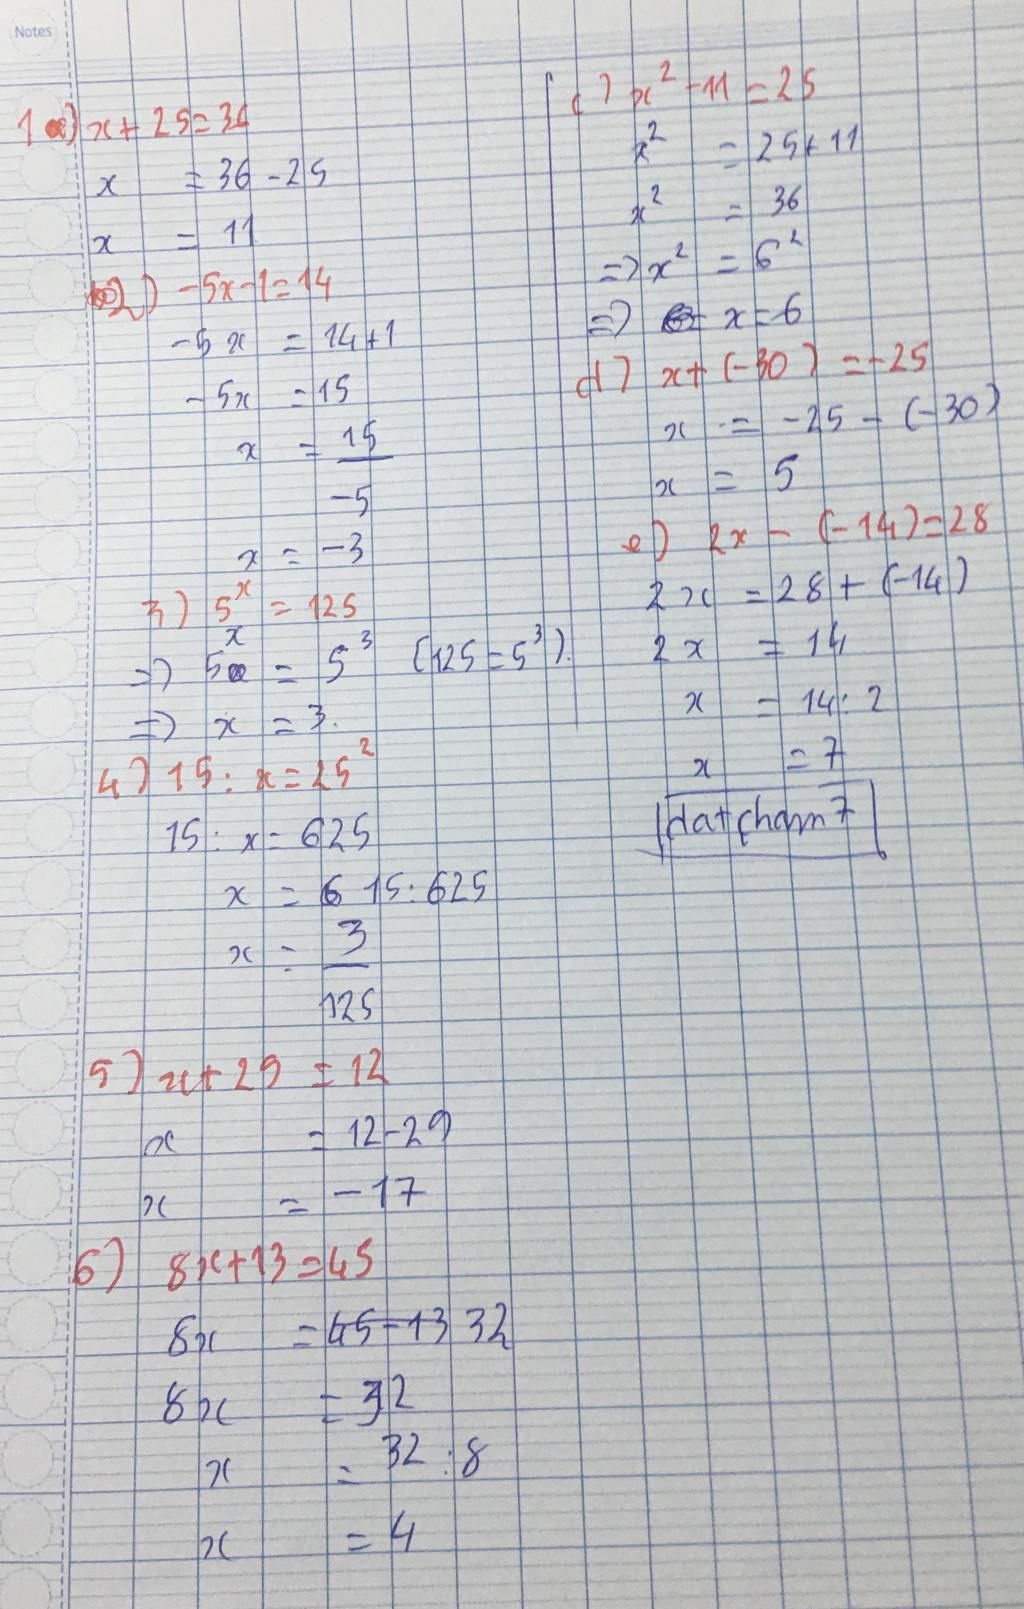 Notes
1 a) x + 25 = 36
x = 36 - 25
x = 11
2) -5x - 1 = 14
-5x = 14 + 1
-5x = 15
x = 15/-5
x = -3
3) 5^x = 125
=> 5^x = 5^3 (125 = 5^3).
=> x = 3.
4) 15 : x = 25^2
15 : x = 625
x = 6 15 : 625
x = 3/125
5) x + 29 = 12
x = 12 - 29
x = -17
6) 8x + 13 = 45
8x = 45 - 13 32
8x = 32
x = 32 : 8
x = 4
c) x^2 - 11 = 25
x^2 = 25 + 11
x^2 = 36
=> x^2 = 6^2
=> x = 6
d) x + (-30) = -25
x = -25 - (-30)
x = 5
e) 2x - (-14) = 28
2x = 28 + (-14)
2x = 14
x = 14 : 2
x = 7
datcham7